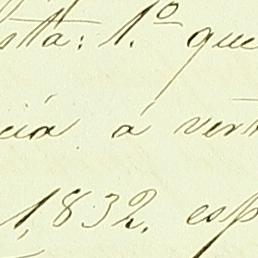 sta: 1.º que
cia á vert
1,832, esp